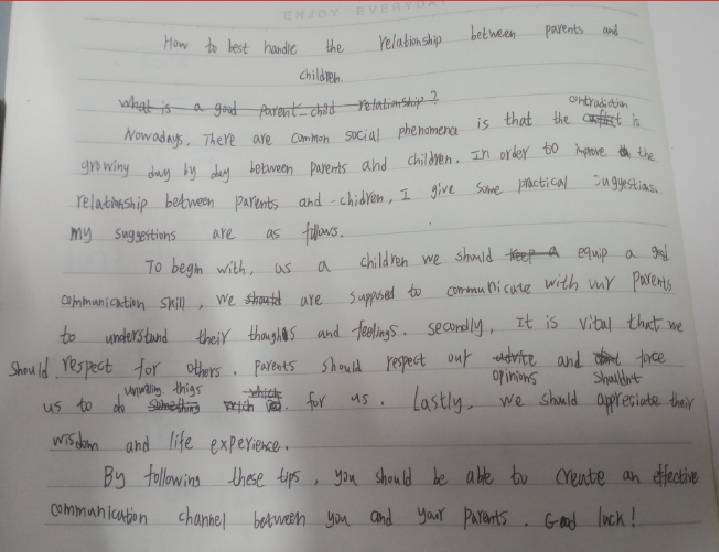 ENJOY EVERYDAY
How to best handle the relationship between parents and
children.
What is a good parent-child relationship?
contradiction
Nowadays. There are common social phenomena is that the conflict is
growing day by day between parents and children. In order to improve the the
relationship between parents and chidren, I give some practical suggestions
my suggestions are as follows.
To begin with, as a children we should keep a equip a good
communication skill, we should are supposed to communicate with our parents
to understand their thoughts and feelings. secondly, It is vital that we
should respect for others. Parents should respect our advice and don't force
opinions shouldn't
unwilling thigs which
us to do something for us. Lastly, we should appreciate their
wisdom and life experience.
By following these tips, you should be able to create an effective
communication channel between you and your parents. Good luck!